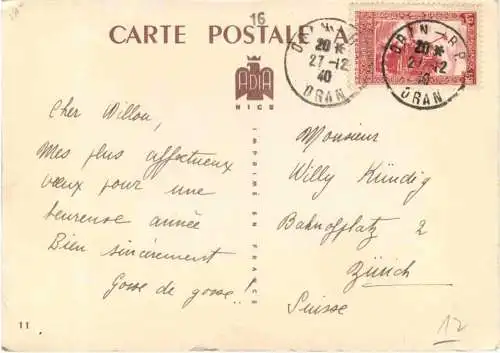 16
CARTE POSTALE A
ORAN R.P
20 *
27-12
40
ORAN
ORAN R.P
20 *
27-12
40
ORAN
ADIA
NICE
IMPRIMÉ EN FRANCE
Cher Willou,
Mes plus affectueux
vœux pour une
heureuse année
Bien sincèrement
Gosse de gosse..!
Monsieur
Willy Kündig
Bahnofplatz 2
Zürich
Suisse
11
12